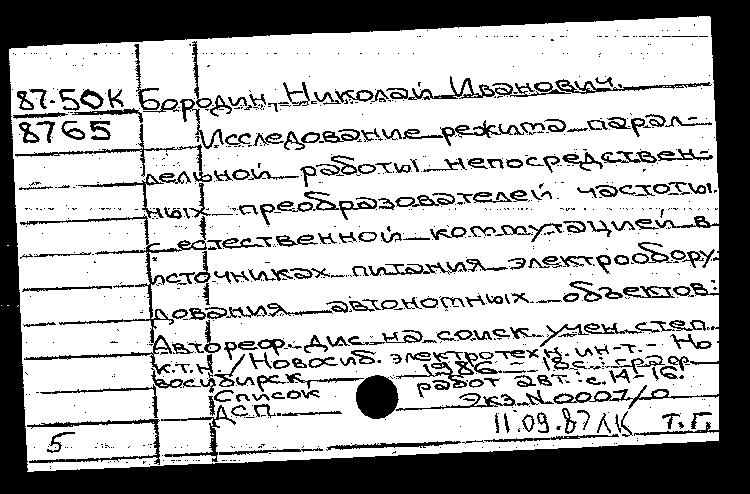 87-50К Бородин, Николай Иванович.
8765 Исследование режима парал-
лельной работы непосредствен-
ных преобразователей частоты
с естественной коммутацией в
источниках питания электрообору-
дования автономных объектов:
Автореф. дис. на соиск. учен. степ.
к.т.н. / Новосиб. электротехн. ин-т. - Но-
восибирск, 1986 - 18с., граф.
Список работ авт.: с. 14-16.
ДСП Экз. N 0007/0
5 11.09.87 ЛК Т.Г.